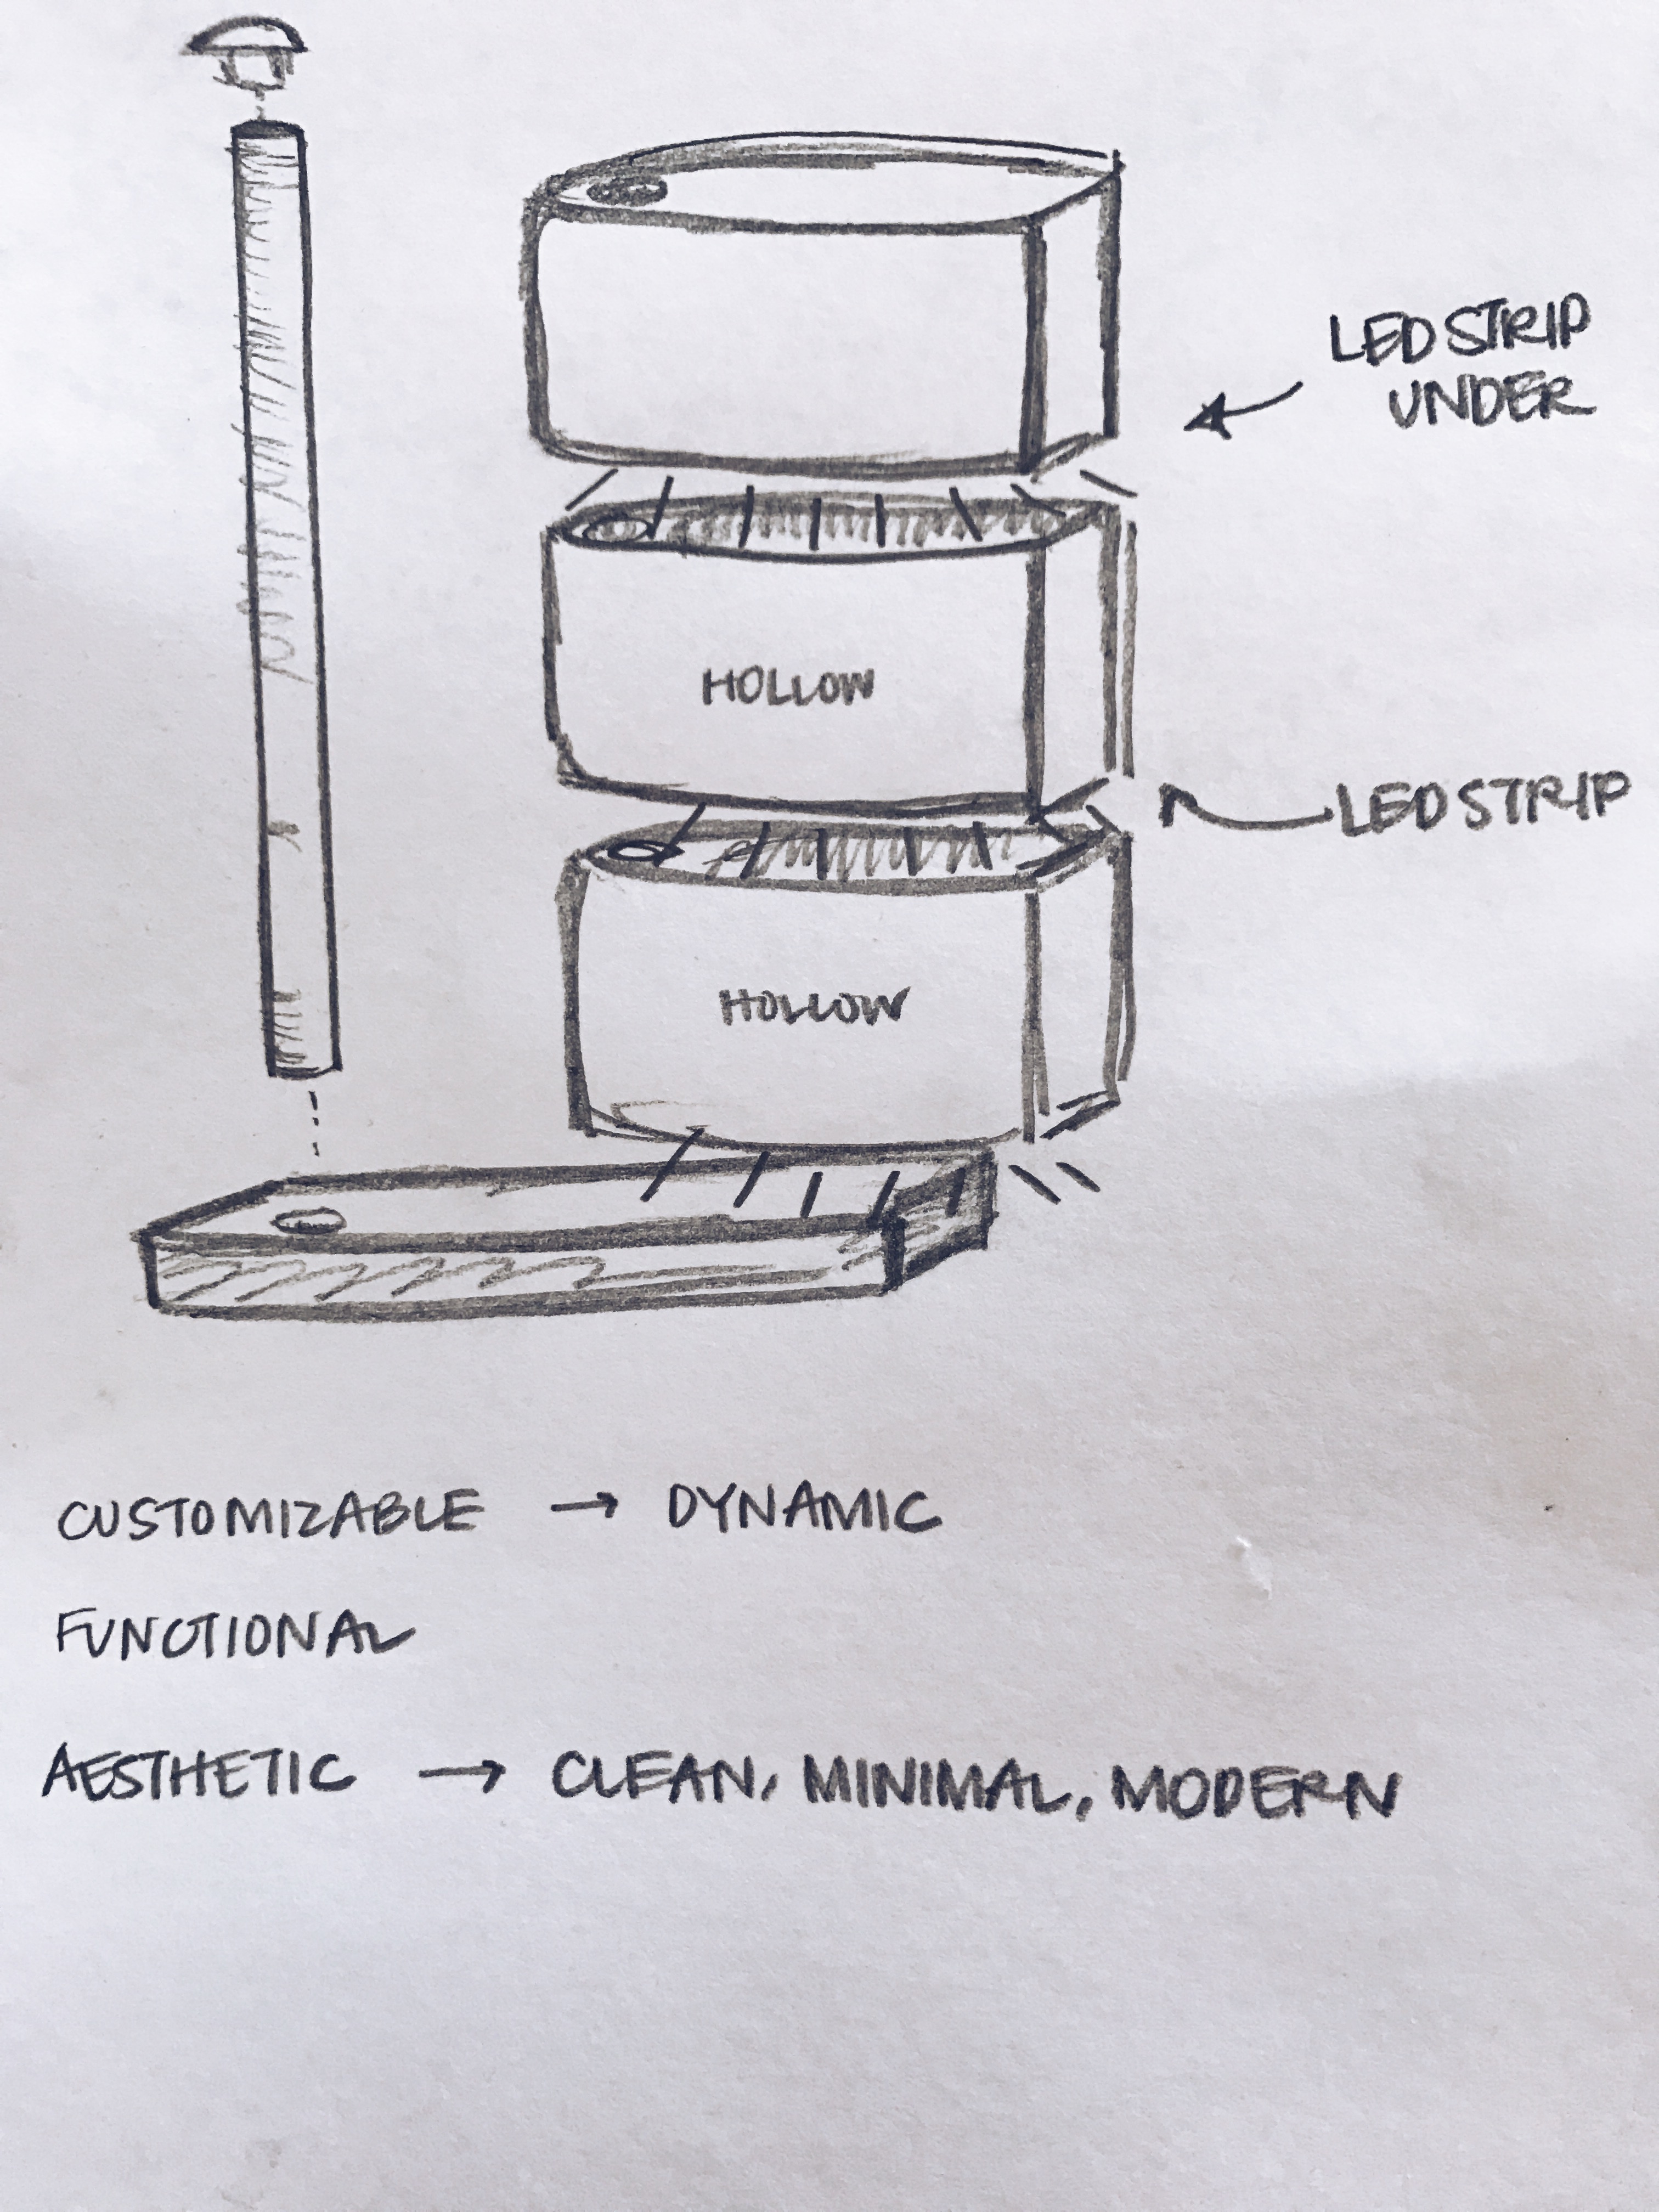 LED STRIP
UNDER
HOLLOW
LED STRIP
HOLLOW
CUSTOMIZABLE → DYNAMIC
FUNCTIONAL
AESTHETIC → CLEAN, MINIMAL, MODERN